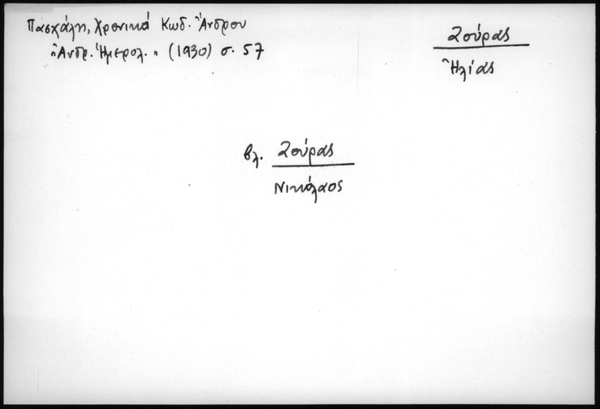 Πασχάλη, Χρονικά Κωδ. Ἄνδρου
"Ἀνδρ. Ἡμερολ." (1930) σ. 57
Ζούρας
Ἠλίας
βλ. Ζούρας
Νικόλαος